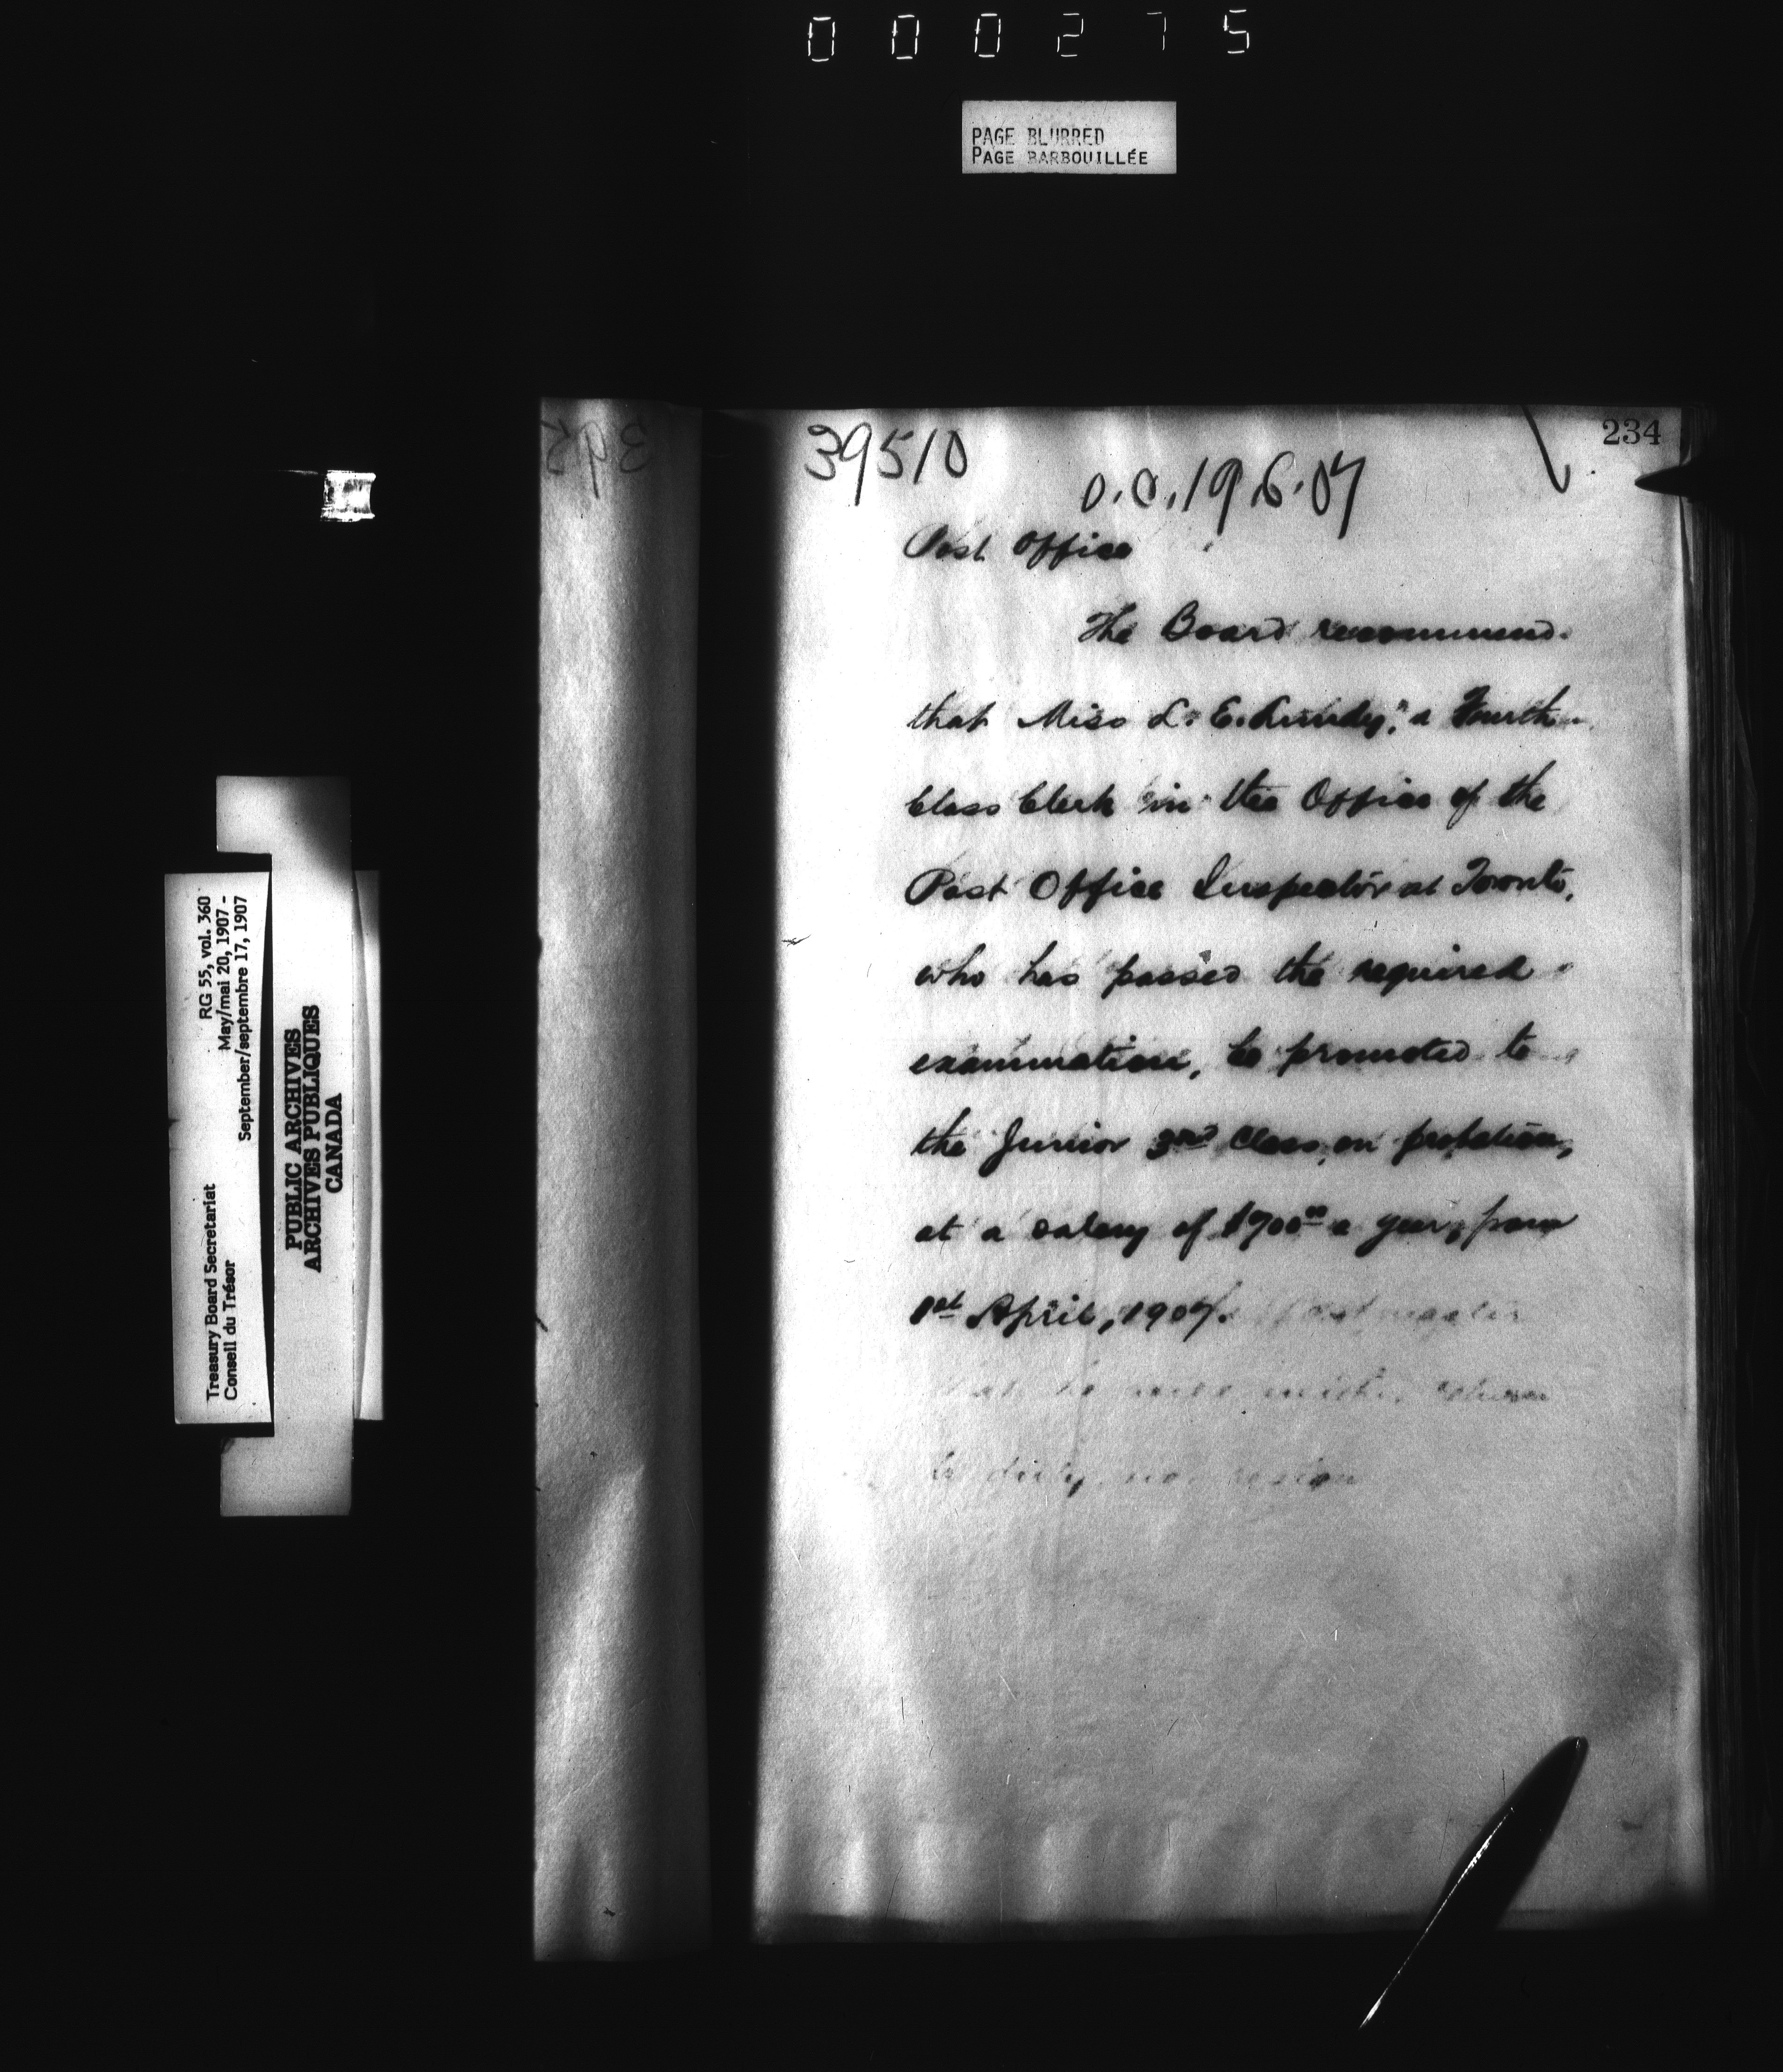 000275
PAGE BLURRED
PAGE BARBOUILLÉE
234
39510
O.C. 19.6.07
Post Office
The Board recommend
that Miss L. E. Lundy, a Fourth
Class Clerk in the Office of the
Post Office Inspector at Toronto,
who has passed the required
examination, be promoted to
the Junior 3rd Class, on probation,
at a salary of $700 00 a year, from
1st April, 1907.
to duty
RG 55, vol. 360
May/mai 20, 1907 -
September/septembre 17, 1907
Treasury Board Secretariat
Conseil du Trésor
PUBLIC ARCHIVES
ARCHIVES PUBLIQUES
CANADA